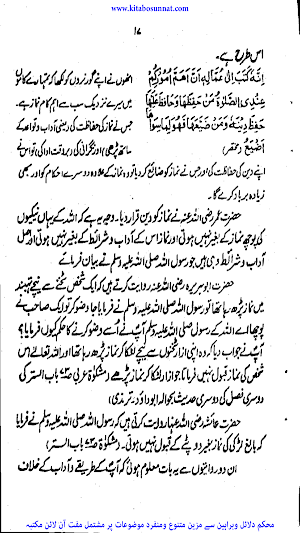 www.kitabosunnat.com
۱۷
اس طرح ہے۔
اِنَّهٗ كَتَبَ اِلٰى عُمَّالِهٖ اَنَّ اَهَمَّ اُمُوْرِكُمْ انھوں نے اپنے گورنروں کو لکھا کہ تمہارے کاموں
عِنْدِى الصَّلٰوةُ مَنْ حَفِظَهَا وَحَافَظَ عَلَيْهَا میں میرے نزدیک سب سے اہم کام نماز ہے۔
حَفِظَ دِيْنَهٗ وَمَنْ ضَيَّعَهَا فَهُوَ لِمَا سِوَاهَا جس نے نماز کی حفاظت کی (یعنی آداب و قواعد کے
اَضْيَعُ (مختصر) ساتھ پڑھی) اور نگرانی کی (بروقت ادا کی) تو اس نے
اپنے دین کی حفاظت کی اور جس نے نماز کو ضائع کر دیا تو وہ نماز کے علاوہ دوسرے احکام کو اور بھی
زیادہ برباد کرے گا۔
حضرت عمر رضی اللہ عنہ نے نماز کو دین قرار دیا۔ وجہ یہ ہے کہ اللہ کے یہاں نیکیوں
کی پوچھ نماز کے بغیر نہیں ہوتی اور نماز اس کے آداب و شرائط کے بغیر نہیں ہوتی اور اصل
آداب و شرائط وہی ہیں جو رسول اللہ صلی اللہ علیہ وسلم نے بیان فرمائے
حضرت ابو ہریرہ رضی اللہ عنہ روایت کرتے ہیں کہ ایک شخص ٹخنے سے نیچے تہبند
میں نماز پڑھ رہا تھا تو رسول اللہ صلی اللہ علیہ وسلم نے فرمایا جا وضو کر تو ایک صاحب نے
پوچھا اے اللہ کے رسول صلی اللہ علیہ وسلم آپ نے اُسے وضو کرنے کا حکم کیوں فرمایا؟
آپ نے جواب دیا کہ وہ اپنی ازار ٹخنوں سے نیچے لٹکا کر نماز پڑھ رہا تھا اور اللہ تعالیٰ اس
شخص کی نماز قبول نہیں فرماتا جو ازار لٹکا کر نماز پڑھے (مشکوٰۃ عربی باب الستر کی
دوسری فصل کی دوسری حدیث بحوالہ ابوداؤد، ترمذی)
حضرت عائشہ رضی اللہ عنہا روایت کرتی ہیں کہ رسول اللہ صلی اللہ علیہ وسلم نے فرمایا
کہ بالغ لڑکی کی نماز بغیر دوپٹے کے قبول نہیں ہوتی۔ (مشکوٰۃ باب الستر)
ان دو روایتوں سے یہ بات معلوم ہوئی کہ آپ کے طریقے و آداب کے خلاف
محکم دلائل وبراہین سے مزین متنوع ومنفرد موضوعات پر مشتمل مفت آن لائن مکتبہ